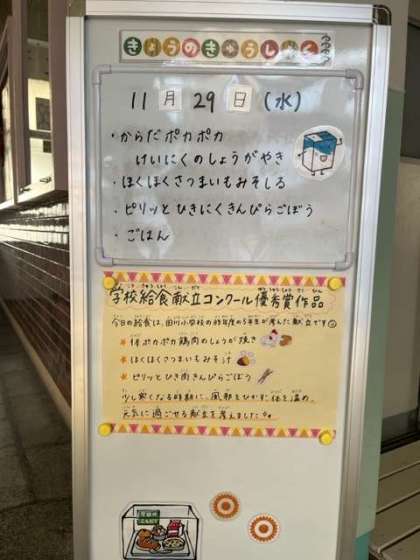 きょうのきゅうしょく
11月29日(水)
・からだポカポカ
けいにくのしょうがやき
・ほくほくさつまいもみそしる
・ピリッとひきにくきんぴらごぼう
・ごはん
学校給食献立コンクール優秀賞作品
今日の給食は、田川小学校の昨年度の5年生が考えた献立です
★体ポカポカ鶏肉のしょうが焼き
★ほくほくさつまいもみそ汁
★ピリッとひき肉きんぴらごぼう
少し寒くなる時期に、風邪をひかず体を温め、
元気に過ごせる献立を考えました